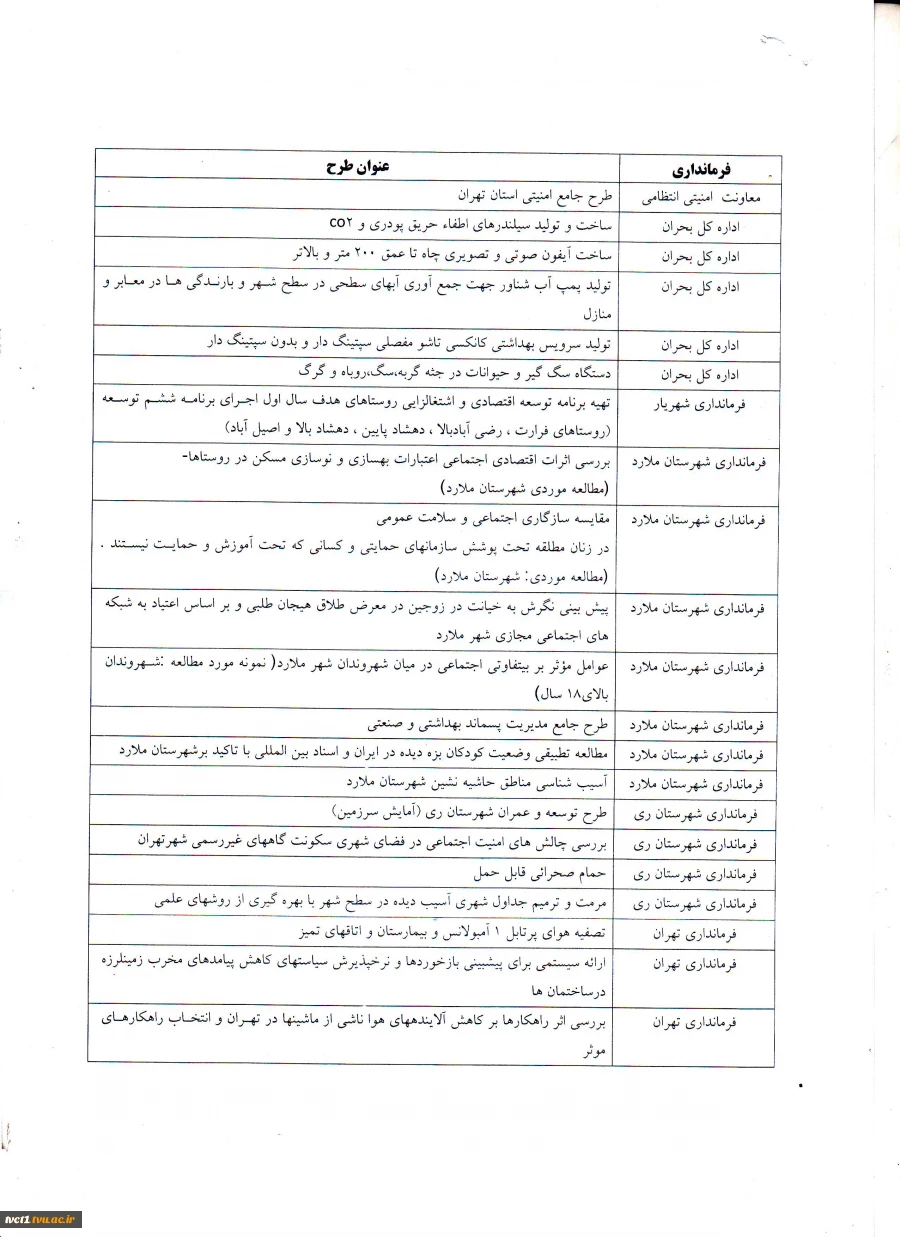 فرمانداری	عنوان طرح
معاونت امنیتی انتظامی	طرح جامع امنیتی استان تهران
اداره کل بحران	ساخت و تولید سیلندرهای اطفاء حریق پودری و co۲
اداره کل بحران	ساخت آیفون صوتی و تصویری چاه تا عمق ۲۰۰ متر و بالاتر
اداره کل بحران	تولید پمپ آب شناور جهت جمع آوری آبهای سطحی در سطح شهر و بارندگی ها در معابر و
منازل
اداره کل بحران	تولید سرویس بهداشتی کانکسی تاشو مفصلی سپتینگ دار و بدون سپتینگ دار
اداره کل بحران	دستگاه سگ گیر و حیوانات در جثه گربه،سگ،روباه و گرگ
فرمانداری شهریار	تهیه برنامه توسعه اقتصادی و اشتغالزایی روستاهای هدف سال اول اجرای برنامه ششم توسعه
(روستاهای فرارت ، رضی آبادبالا ، دهشاد پایین ، دهشاد بالا و اصیل آباد)
فرمانداری شهرستان ملارد	بررسی اثرات اقتصادی اجتماعی اعتبارات بهسازی و نوسازی مسکن در روستاها-
(مطالعه موردی شهرستان ملارد)
فرمانداری شهرستان ملارد	مقایسه سازگاری اجتماعی و سلامت عمومی
در زنان مطلقه تحت پوشش سازمانهای حمایتی و کسانی که تحت آموزش و حمایت نیستند .
(مطالعه موردی: شهرستان ملارد)
فرمانداری شهرستان ملارد	پیش بینی نگرش به خیانت در زوجین در معرض طلاق هیجان طلبی و بر اساس اعتیاد به شبکه
های اجتماعی مجازی شهر ملارد
فرمانداری شهرستان ملارد	عوامل مؤثر بر بیتفاوتی اجتماعی در میان شهروندان شهر ملارد( نمونه مورد مطالعه :شهروندان
بالای۱۸ سال)
فرمانداری شهرستان ملارد	طرح جامع مدیریت پسماند بهداشتی و صنعتی
فرمانداری شهرستان ملارد	مطالعه تطبیقی وضعیت کودکان بزه دیده در ایران و اسناد بین المللی با تاکید برشهرستان ملارد
فرمانداری شهرستان ملارد	آسیب شناسی مناطق حاشیه نشین شهرستان ملارد
فرمانداری شهرستان ری	طرح توسعه و عمران شهرستان ری (آمایش سرزمین)
فرمانداری شهرستان ری	بررسی چالش های امنیت اجتماعی در فضای شهری سکونت گاههای غیررسمی شهرتهران
فرمانداری شهرستان ری	حمام صحرائی قابل حمل
فرمانداری شهرستان ری	مرمت و ترمیم جداول شهری آسیب دیده در سطح شهر با بهره گیری از روشهای علمی
فرمانداری تهران	تصفیه هوای پرتابل ۱ آمبولانس و بیمارستان و اتاقهای تمیز
فرمانداری تهران	ارائه سیستمی برای پیشبینی بازخوردها و نرخپذیرش سیاستهای کاهش پیامدهای مخرب زمینلرزه
درساختمان ها
فرمانداری تهران	بررسی اثر راهکارها بر کاهش آلایندههای هوا ناشی از ماشینها در تهران و انتخاب راهکارهای
موثر
tvct1.tvu.ac.ir